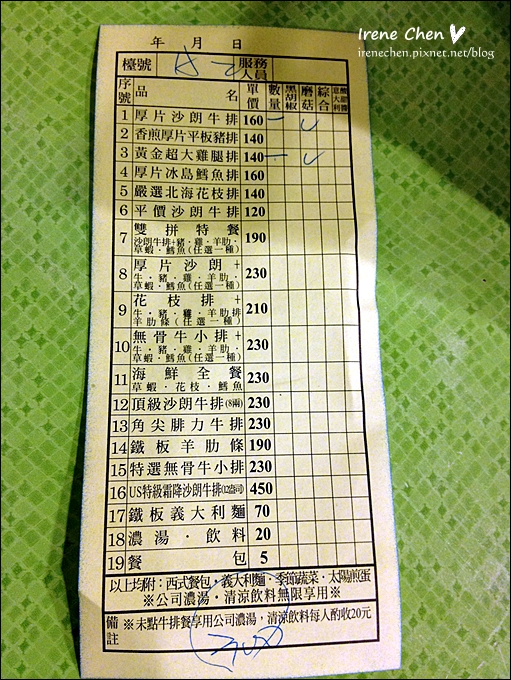 Irene Chen
irenechen.pixnet.net/blog
年 月 日
檯號 服務人員
序號 品名 單價 數量 黑胡椒 磨菇 綜合 意大利 酸甜醬
1 厚片沙朗牛排 160 一
2 香煎厚片平板豬排 140
3 黃金超大雞腿排 140 一
4 厚片冰島鱈魚排 160
5 嚴選北海花枝排 140
6 平價沙朗牛排 120
7 雙拼特餐 190
沙朗牛排+豬·雞·羊肋·
草蝦·鱈魚(任選一種)
8 厚片沙朗+ 230
牛·豬·雞·羊肋·
草蝦·鱈魚(任選一種)
9 花枝排+ 210
牛·豬·雞·羊肋排
羊肋條(任選一種)
10 無骨牛小排+ 230
牛·豬·雞·羊肋·
草蝦·鱈魚(任選一種)
11 海鮮全餐 230
草蝦·花枝·鱈魚
12 頂級沙朗牛排(8兩) 230
13 角尖腓力牛排 230
14 鐵板羊肋條 190
15 特選無骨牛小排 230
16 US特級霜降沙朗牛排(12盎司) 450
17 鐵板義大利麵 70
18 濃湯·飲料 20
19 餐包 5
以上均附:西式餐包·義大利麵·季節蔬菜·太陽煎蛋
※公司濃湯·清涼飲料無限享用※
備註 ※未點牛排餐享用公司濃湯,清涼飲料每人酌收20元
300